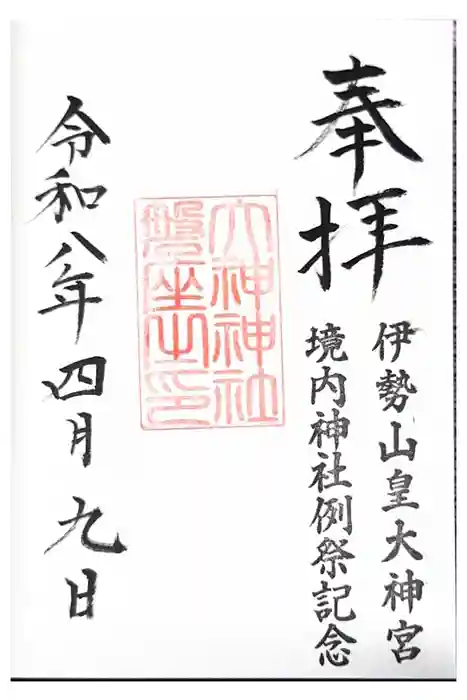 奉拝
伊勢山皇大神宮
境内神社例祭記念
大神神社
磐座之印
令和八年四月九日